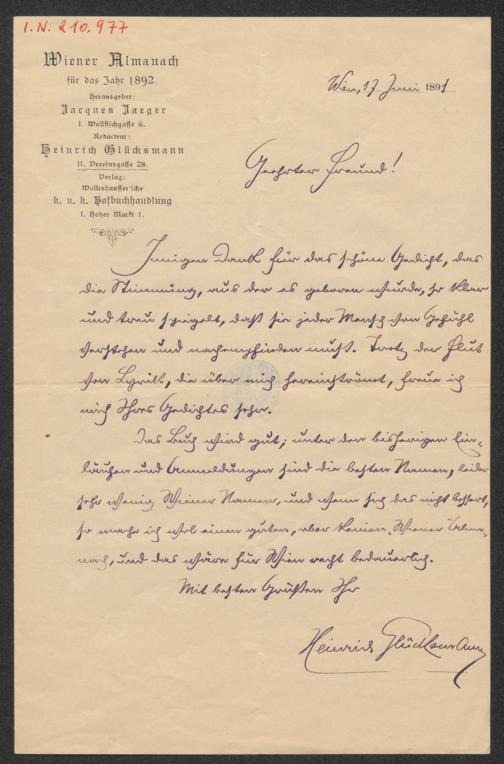 I. N. 210.977
Wiener Almanach
für das Jahr 1892.
Herausgeber:
Jacques Jaeger
I. Wallfischgasse 6.
Redacteur:
Heinrich Glücksmann
II. Vereinsgasse 28.
Verlag:
Wallishausser'sche
k. u. k. Hofbuchhandlung
I. Hoher Markt 1.
Wien, 17. Juni 1891
Geehrter Freund!
Innigen Dank für das schöne Gedicht, das
die Stimmung, aus der es geboren wurde, so klar
und treu spiegelt, daß sie jeder Mensch von Gefühl
verstehen und nachempfinden muß. Trotz der Flut
von Lyrik, die über mich hereinströmt, freue ich
mich Ihres Gedichtes sehr.
Das Buch wird gut; unter den bisherigen Ein-
läufen und Anmeldungen sind die besten Namen, leider
sehr wenig Wiener Namen, und wenn sich das nicht bessert,
so mache ich wol einen guten, aber keinen „Wiener" Alma-
nach, und das wäre für Wien recht bedauerlich.
Mit besten Grüßen Ihr
Heinrich Glücksmann